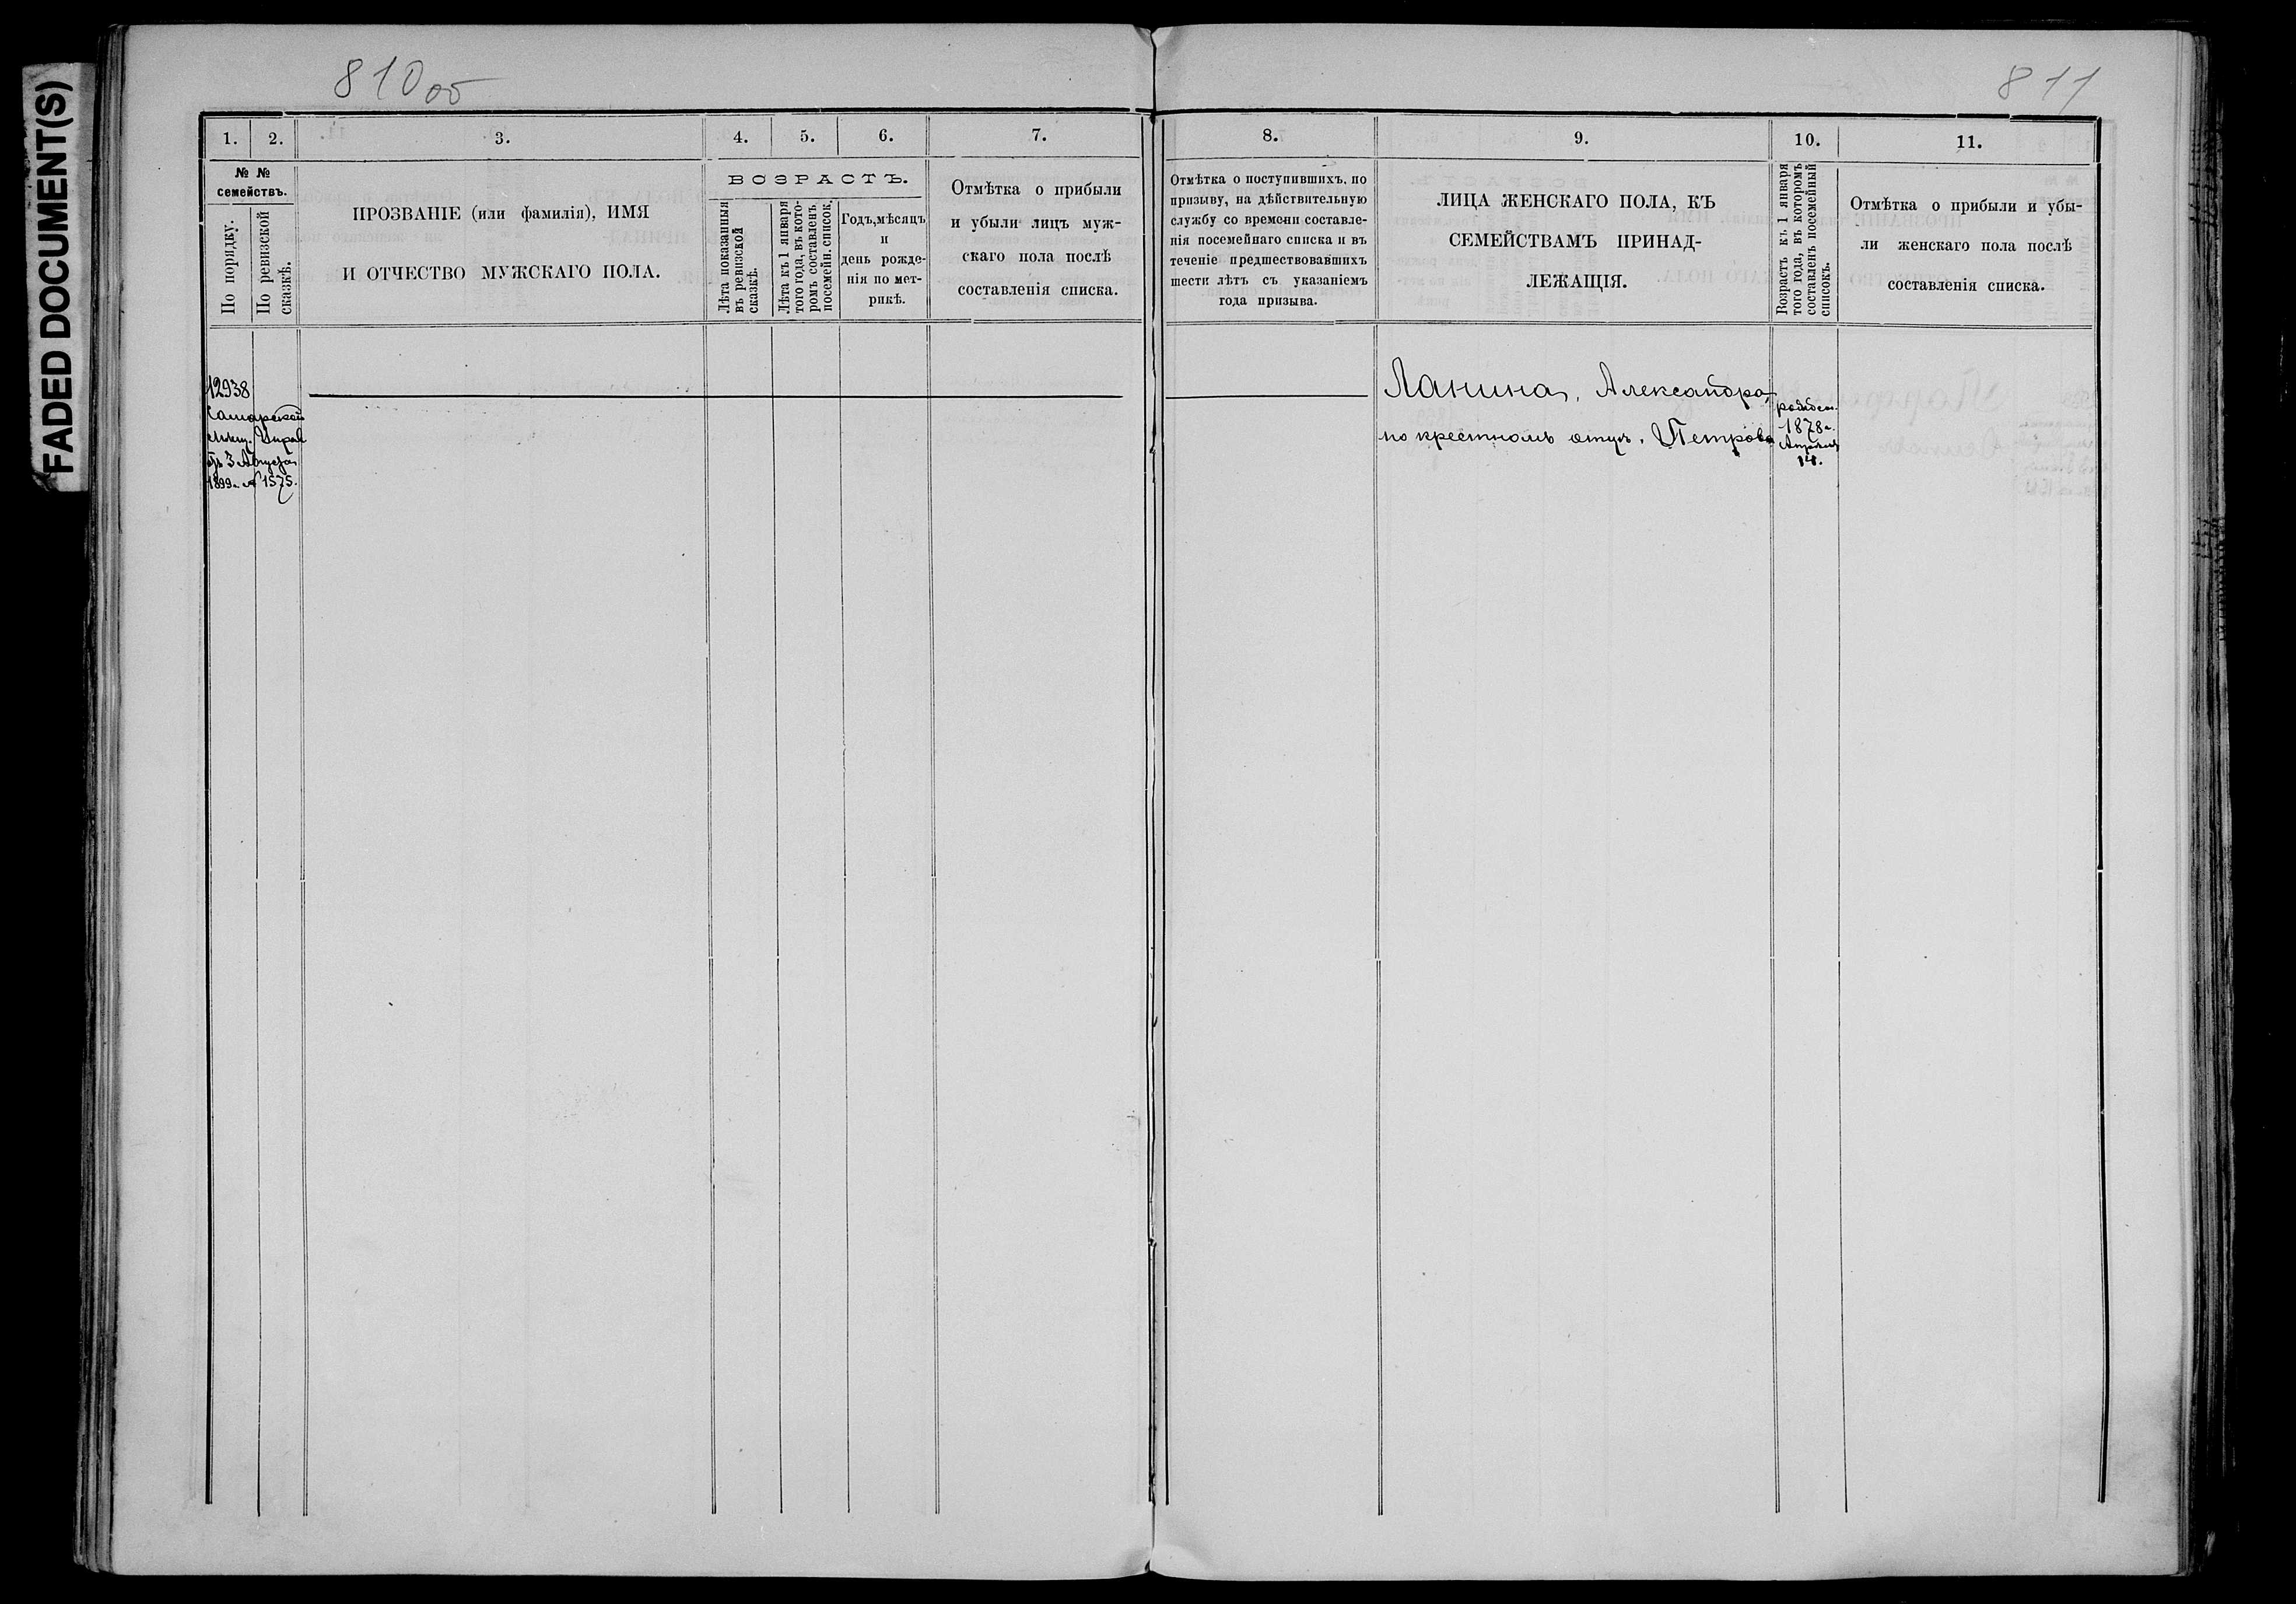 FADED DOCUMENT(S)
810 об
811
1.
2.
3.
4.
5.
6.
7.
8.
9.
10.
11.
№ №
семействъ.
По порядку.
По ревизской
сказкѣ.
ПРОЗВАНІЕ (или фамилія), ИМЯ
И ОТЧЕСТВО МУЖСКАГО ПОЛА.
ВОЗРАСТЪ.
Лѣта показанныя
въ ревизской
сказкѣ.
Лѣта къ 1 января
того года, въ кото-
ромъ составленъ
посемейн. список.
Годъ, мѣсяцъ
и
день рожде-
нія по мет-
рикѣ.
Отмѣтка о прибыли
и убыли лицъ муж-
скаго пола послѣ
составленія списка.
Отмѣтка о поступившихъ, по
призыву, на дѣйствительную
службу со времени составле-
нія посемейнаго списка и въ
теченіе предшествовавшихъ
шести лѣтъ съ указаніемъ
года призыва.
ЛИЦА ЖЕНСКАГО ПОЛА, КЪ
СЕМЕЙСТВАМЪ ПРИНАД-
ЛЕЖАЩІЯ.
Возрастъ къ 1 января
того года, въ которомъ
составленъ посемейный
списокъ.
Отмѣтка о прибыли и убы-
ли женскаго пола послѣ
составленія списка.
12938
Самарской
мѣщ. Управ
отъ 3 Августа
1899 г. № 1575.
Ланина, Александра,
по крестномъ отцѣ, Петрова
родилась
1878 г.
Апрѣля
14.